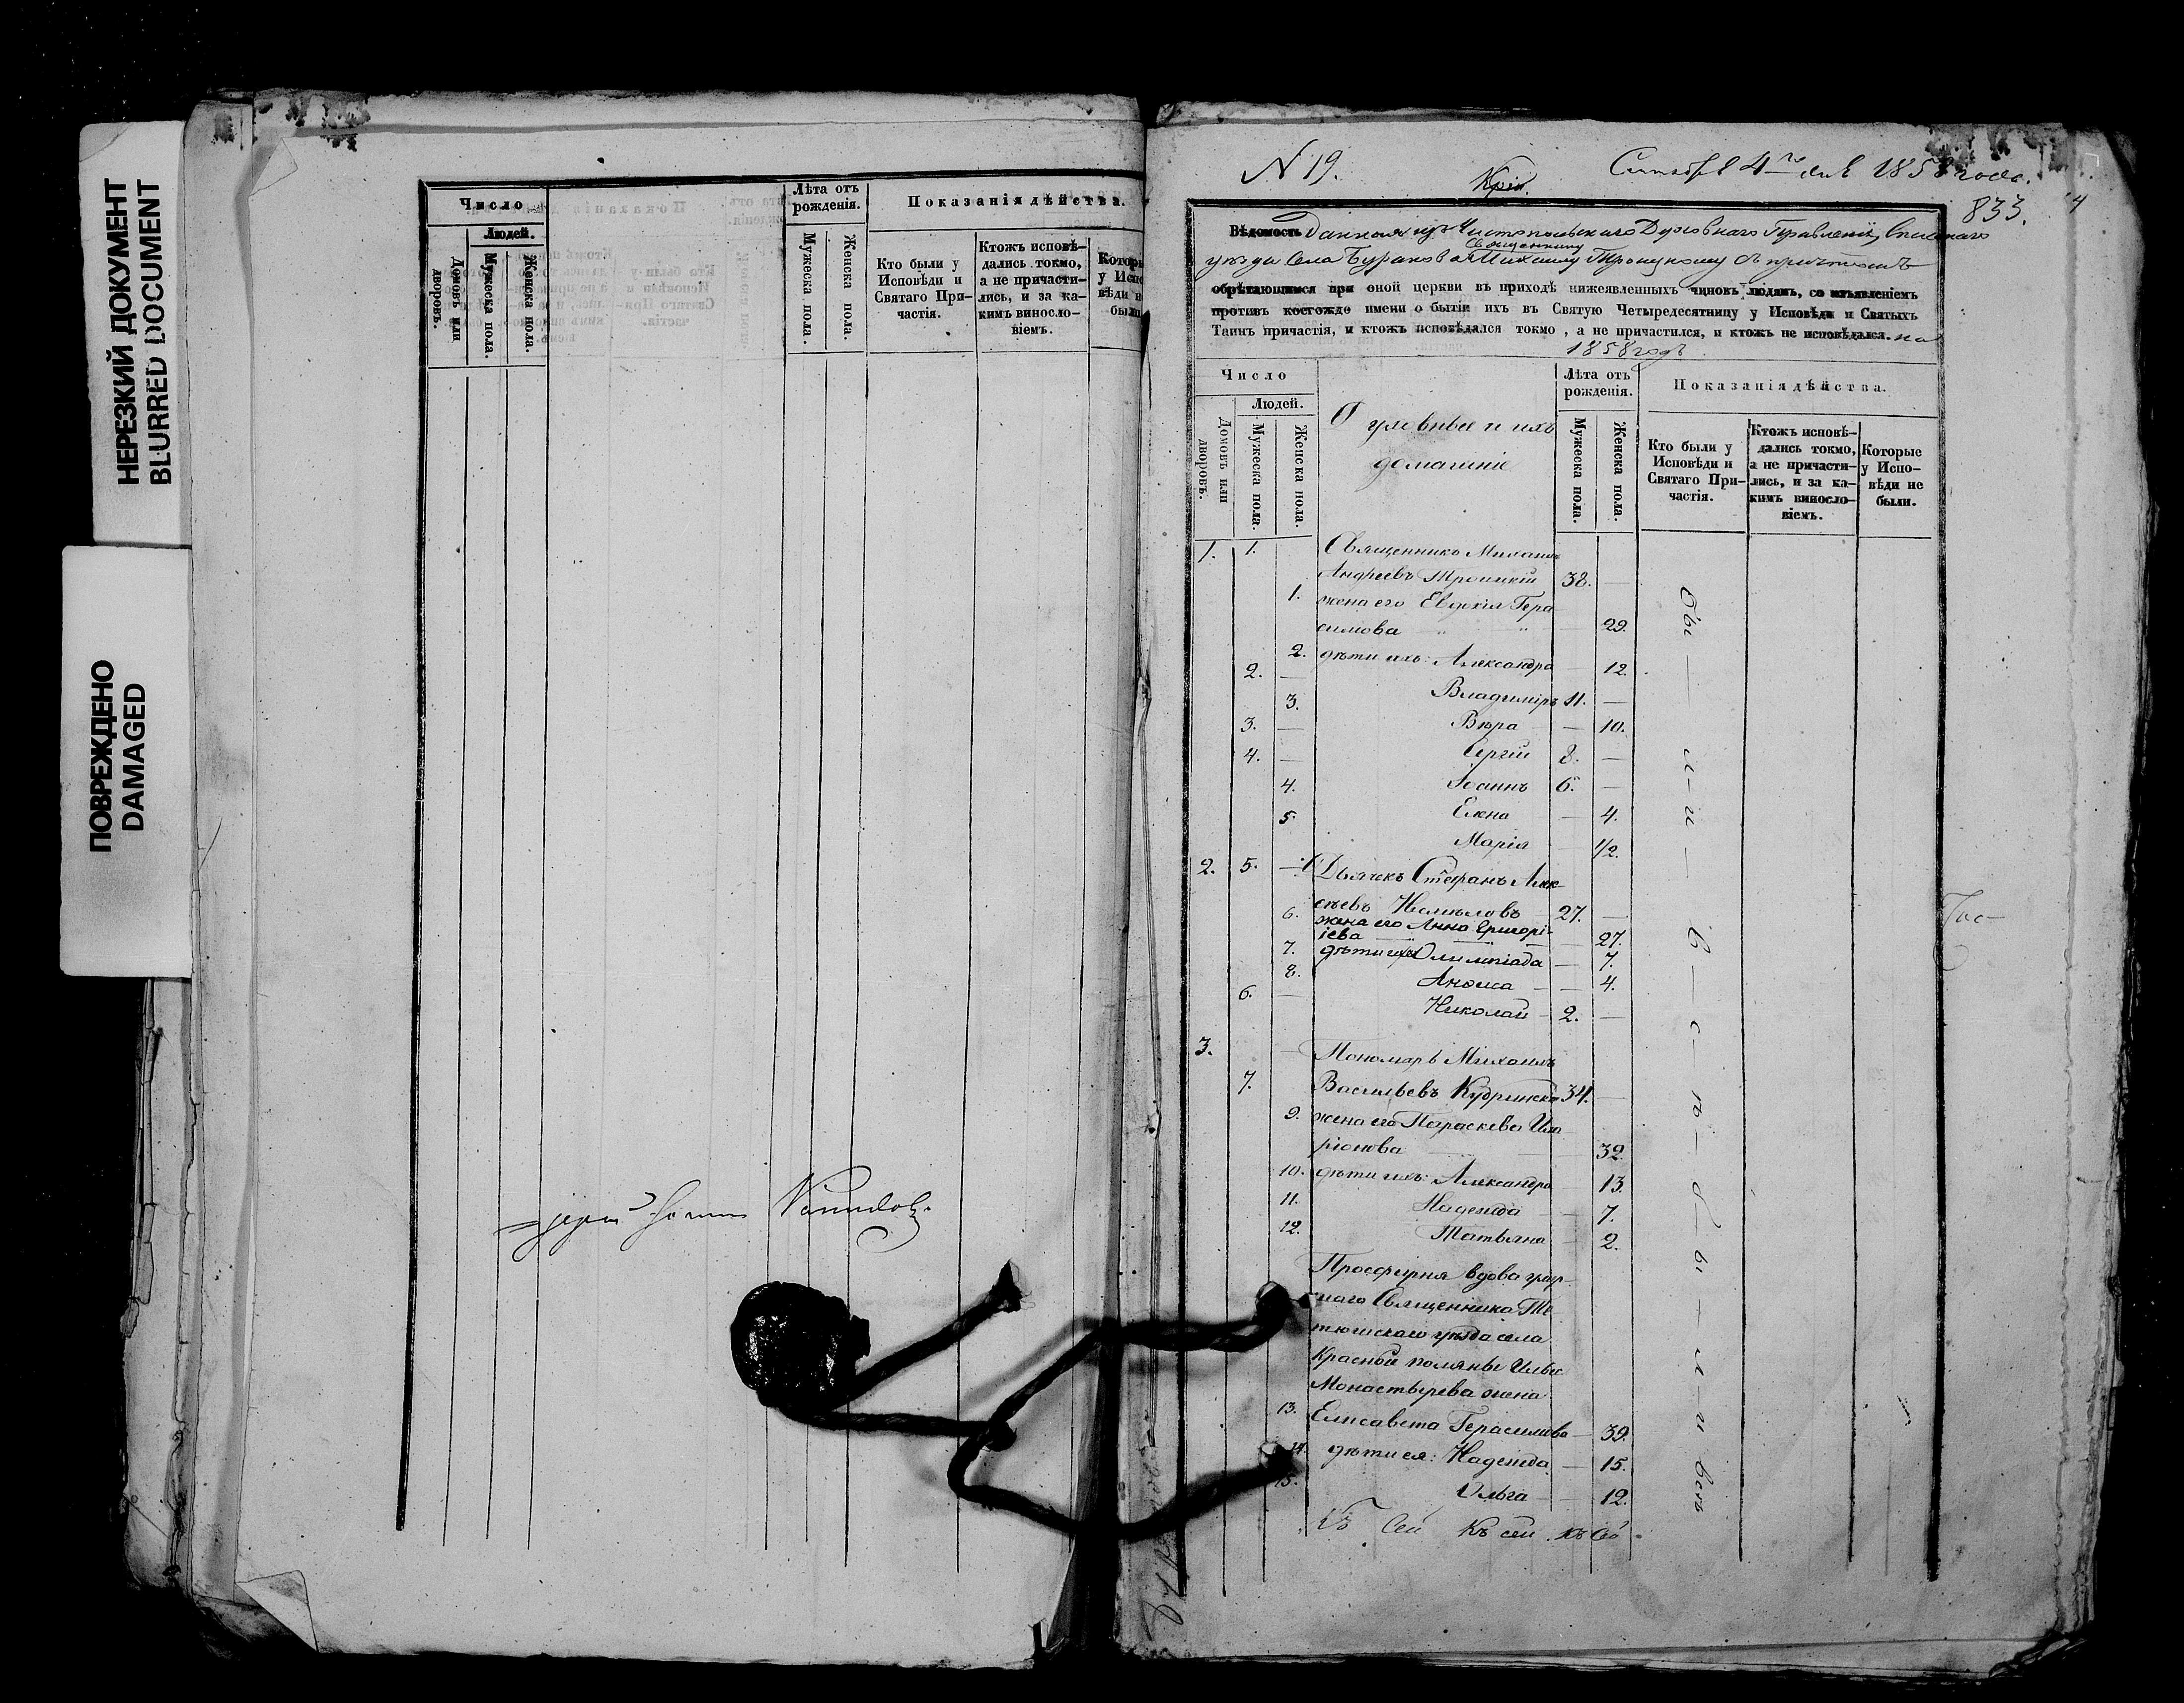 НЕРЕЗКИЙ ДОКУМЕНТ
BLURRED DOCUMENT
ПОВРЕЖДЕНО
DAMAGED
Число
Людей.
Домовъ или дворовъ.
Мужеска пола.
Женска пола.
Лѣта отъ рожденія.
Мужеска пола.
Женска пола.
Показанія дѣйства.
Кто были у Исповѣди и Святаго Причастія.
Ктожъ исповѣдались токмо, а не причастились, и за какимъ винословіемъ.
N 19.
4 1858 года.
833.
Вѣдомость данная изъ Чистопольскаго Духовнаго Правленія Спасскаго
Священнику
уѣзда села Бураково Михаилу Троицкому съ причтомъ
обрѣтающимся при оной церкви въ приходѣ нижеявленныхъ чиновъ людямъ, со изъявленіемъ
противъ коегождо имени о бытіи ихъ въ Святую Четыредесятницу у Исповѣди и Святыхъ
Таинъ причастія, и ктожъ исповѣдался токмо, а не причастился, и ктожъ не исповѣдался. на
1858 годъ
Число
Людей.
Домовъ или дворовъ.
Мужеска пола.
Женска пола.
Духовные и ихъ
домашніе
Лѣта отъ рожденія.
Мужеска пола.
Женска пола.
Показанія дѣйства.
Кто были у Исповѣди и Святаго Причастія.
Ктожъ исповѣдались токмо, а не причастились, и за какимъ винословіемъ.
Которые у Исповѣди не были.
1. 1. Священникъ Михаилъ
Андреевъ Троицкій 38. —
1. жена его Евдокія Гера
симова — 29.
2. дѣти ихъ: Александра — 12.
2. — Владиміръ 11. —
3. Вѣра — 10.
3. — Сергій 8. —
4. — Іоаннъ 6. —
4. Елена — 4.
5. Марія 1/2.
2. 5. — Дьячекъ Стефанъ Алек
сѣевъ 27. —
6. жена его Анна Григорі-
іева — 27.
7. дѣти ихъ Олимпіада — 7.
8. Анѳиса — 4.
6. — Николай 2. —
3. — Пономарь Михаилъ
7. Васильевъ 34. —
9. жена его Параскева Ила
ріонова 32.
10. дѣти ихъ: Александра — 13.
11. Надежда — 7.
12. Татьяна — 2.
Просфирня вдова
наго Священника Те
тюшскаго уѣзда села
Красной поляны Ильи
Монастырева жена
13. Елисавета Герасимова — 39.
14. дѣти ея: Надежда — 15.
15. Ольга — 12.
Къ сей